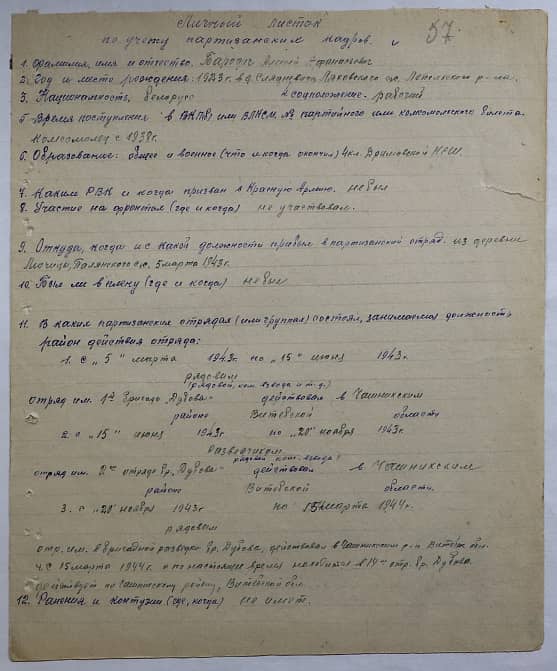 Личный листок
по учету партизанских кадров. 57
1. Фамилия, имя и отчество. Бородич
2. Год и место рождения: 1923 г. в д. с/с. Лепельского р-на.
3. Национальность. белорус 4. соцположение. рабочий
5. Время поступления в ВКП(б) или ВЛКСМ, № партийного или комсомольского билета.
Комсомолец с 1938 г.
6. Образование: общее и военное (что и когда окончил) 4 кл. НСШ.
7. Каким РВК и когда призван в Красную Армию. не был
8. Участие на фронтах (где и когда) не участвовал.
9. Откуда, когда и с какой должности прибыл в партизанский отряд. из деревни
с/с. 5 марта 1943 г.
10. Был ли в плену (где и когда) не был
11. В каких партизанских отрядах (или группах) состоял, занимаемая должность
район действия отряда:
1. с „5" марта 1943 г. по „15" июня 1943 г.
рядовым
(рядовой, ком. взвода и т.д.)
отряд им. 1й бригады „Дубова" действовал в Чашникским
районе Витебской области
2. с „15" июня 1943 г. по „20" ноября 1943 г.
Разведчиком
рядовой ком. взвода
отряд им. 2го отряда бр. „Дубова" действовал в Чашникским
районе Витебской области.
3. с „20" ноября 1943 г по 15 марта 1944 г.
рядовым
отр. им. Бригадной разведки бр. Дубова, действовал в Чашникским р-н Витебск. обл.
4. С 15 марта 1944 г. и по настоящее время находится в 14м отр. бр. Дубова.
действует по Чашникскому району, Витебской обл.
12. Ранения и контузии (где, когда) не имет.